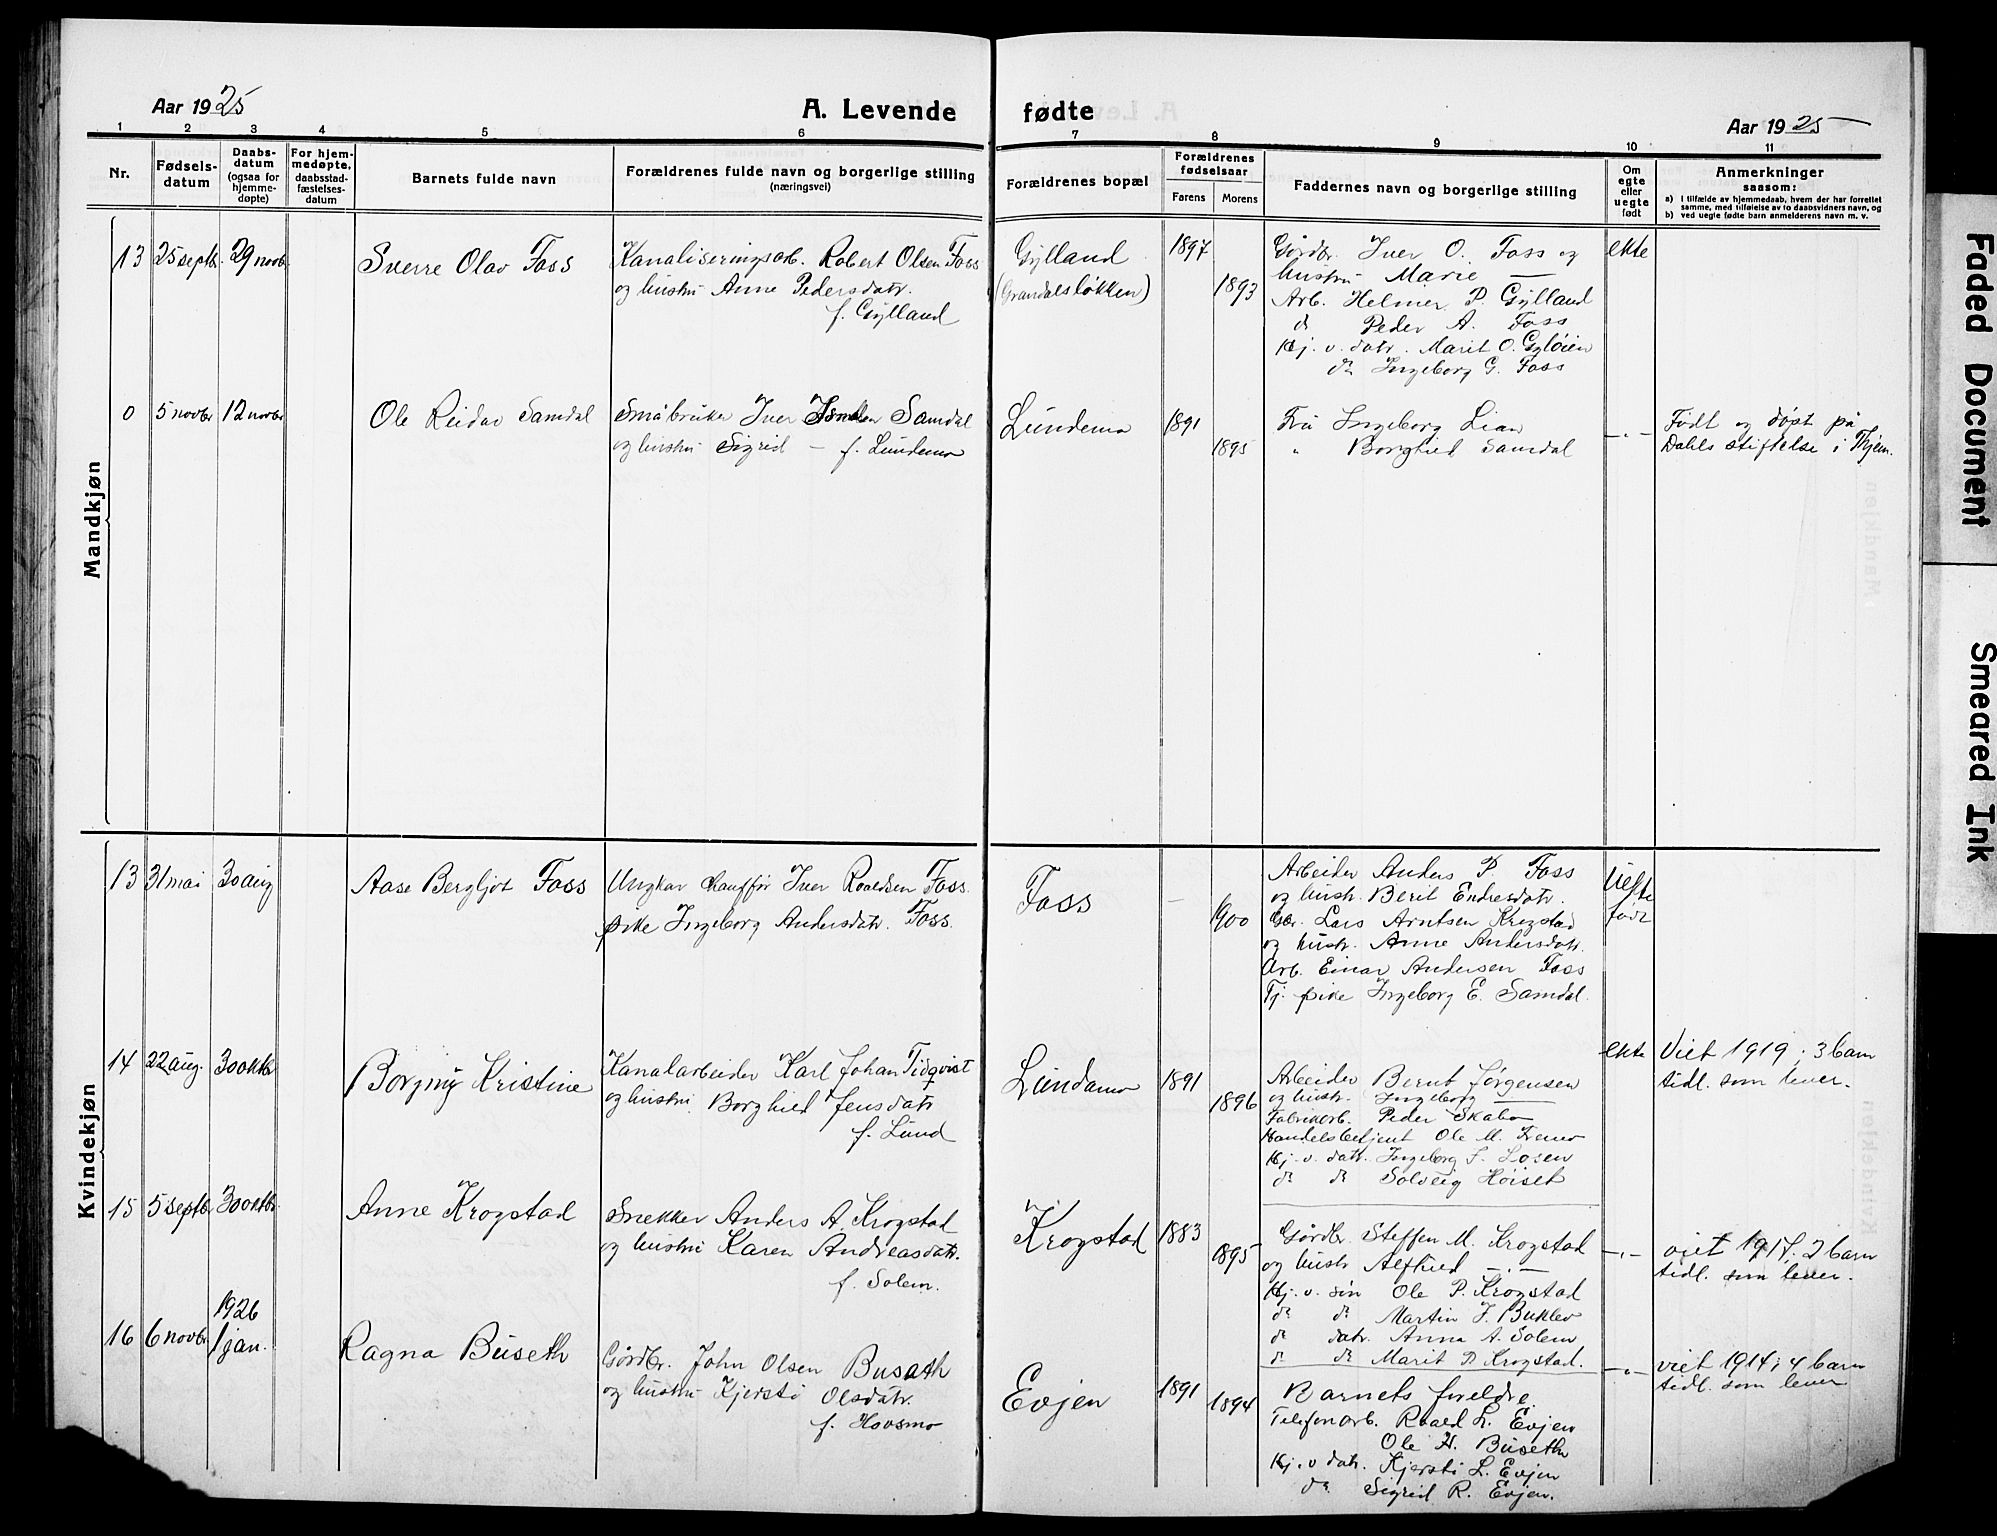 Aar 1925
A. Levende fødte
Aar 1925
1 2 3 4 5 6 7 8 9 10 11
Nr.
Fødsels-
datum
Daabs-
datum
(ogsaa for
hjemme-
døpte)
For hjem-
medøpte,
daabsstad-
fæstelses-
datum
Barnets fulde navn
Forældrenes fulde navn og borgerlige stilling
(næringsvei)
Forældrenes bopæl
Forældrenes
fødselsaar
Farens Morens
Faddernes navn og borgerlige stilling
Om
egte
eller
uegte
født
Anmerkninger
saasom:
a) I tilfælde av hjemmedaab, hvem der har forrettet
samme, med tilføielse av to daabsvidners navn, og
b) ved uegte fødte barn anmelderens navn m. v.
Mandkjøn
13 25 septbr. 29 novbr.
Sverre Olav Foss
Kanaliseringsarb. Robert Olsen Foss
og hustru Anne Pedersdatr.
f. Gylland
Gylland
(Grandalsløkken)
1897
1893
Gårdbr. Iver O. Foss og
hustru Marie —
Arb. Helmer P. Gylland
do Peder A. Foss
Hj. v. datr. Marit O. Gyløien
do Ingeborg G. Foss
ekte
0 5 novbr 12 novbr
Ole Reidar Samdal
Småbruker Iver Samdal
og hustru Sigrid — f. Lundemo
Lundemo
1891
1895
Fru Ingeborg Lian
" Borghild Samdal
—"—
Født og døpt på
Dahls stiftelse i Thjem.
Kvindekjøn
13 31 mai 30 aug
Aase Bergljot Foss
Ungkar chauffør Iver Roaldsen Foss
pike Ingeborg Andersdatr. Foss.
Foss
—
1900
Arbeider Anders P. Foss
og hustr. Berit Endresdatr.
Gbr. Lars Arntsen Krogstad
og hustr. Anne Andersdatr.
Arb. Einar Andersen Foss
Tj. pike Ingeborg E. Samdal.
Uekte
født
14 22 aug. 30 oktbr
Borgny Kristine
Kanalarbeider Karl Johan Tidqvist
og hustru Borghild Jensdatr
f. Lund
Lundamo
1891
1896
Arbeider Bernt Jørgensen
og hustr. Ingeborg —
Fabrikarb. Peder Skabo
Handelsbetjent Ole M. Fremo
Hj. v. datr. Ingeborg S. Losen
do do Solveig Høiset
ekte
Viet 1919; 3 barn
tidl. som lever.
15 5 septbr 30 oktbr.
Anne Krogstad
Snekker Anders A. Krogstad
og hustru Karen Andreasdatr.
f. Solem.
Krogstad
1883
1895
Gårdbr. Steffen M. Krogstad
og hustr Alfhild —"—
Hj. v. søn Ole P. Krogstad
do do Martin J. Buklev
do datr. Anna A. Solem
do do Marit P. Krogstad.
—"—
viet 1917; 2 barn
tidl. som lever.
16 6 novbr 1926
1 jan.
Ragna Buseth
Gårdbr. John Olsen Buseth
og hustru Kjersti Olsdatr.
f. Hovsmo
Evjen
1891
1894
Barnets foreldre.
Telefonarb. Roald L. Evjen
Ole H. Buseth
Hj. v datr. Kjersti L. Evjen
do Sigrid R. Evjen.
—"—
viet 1914; 4 barn
tidl. som lever
Faded Document
Smeared Ink